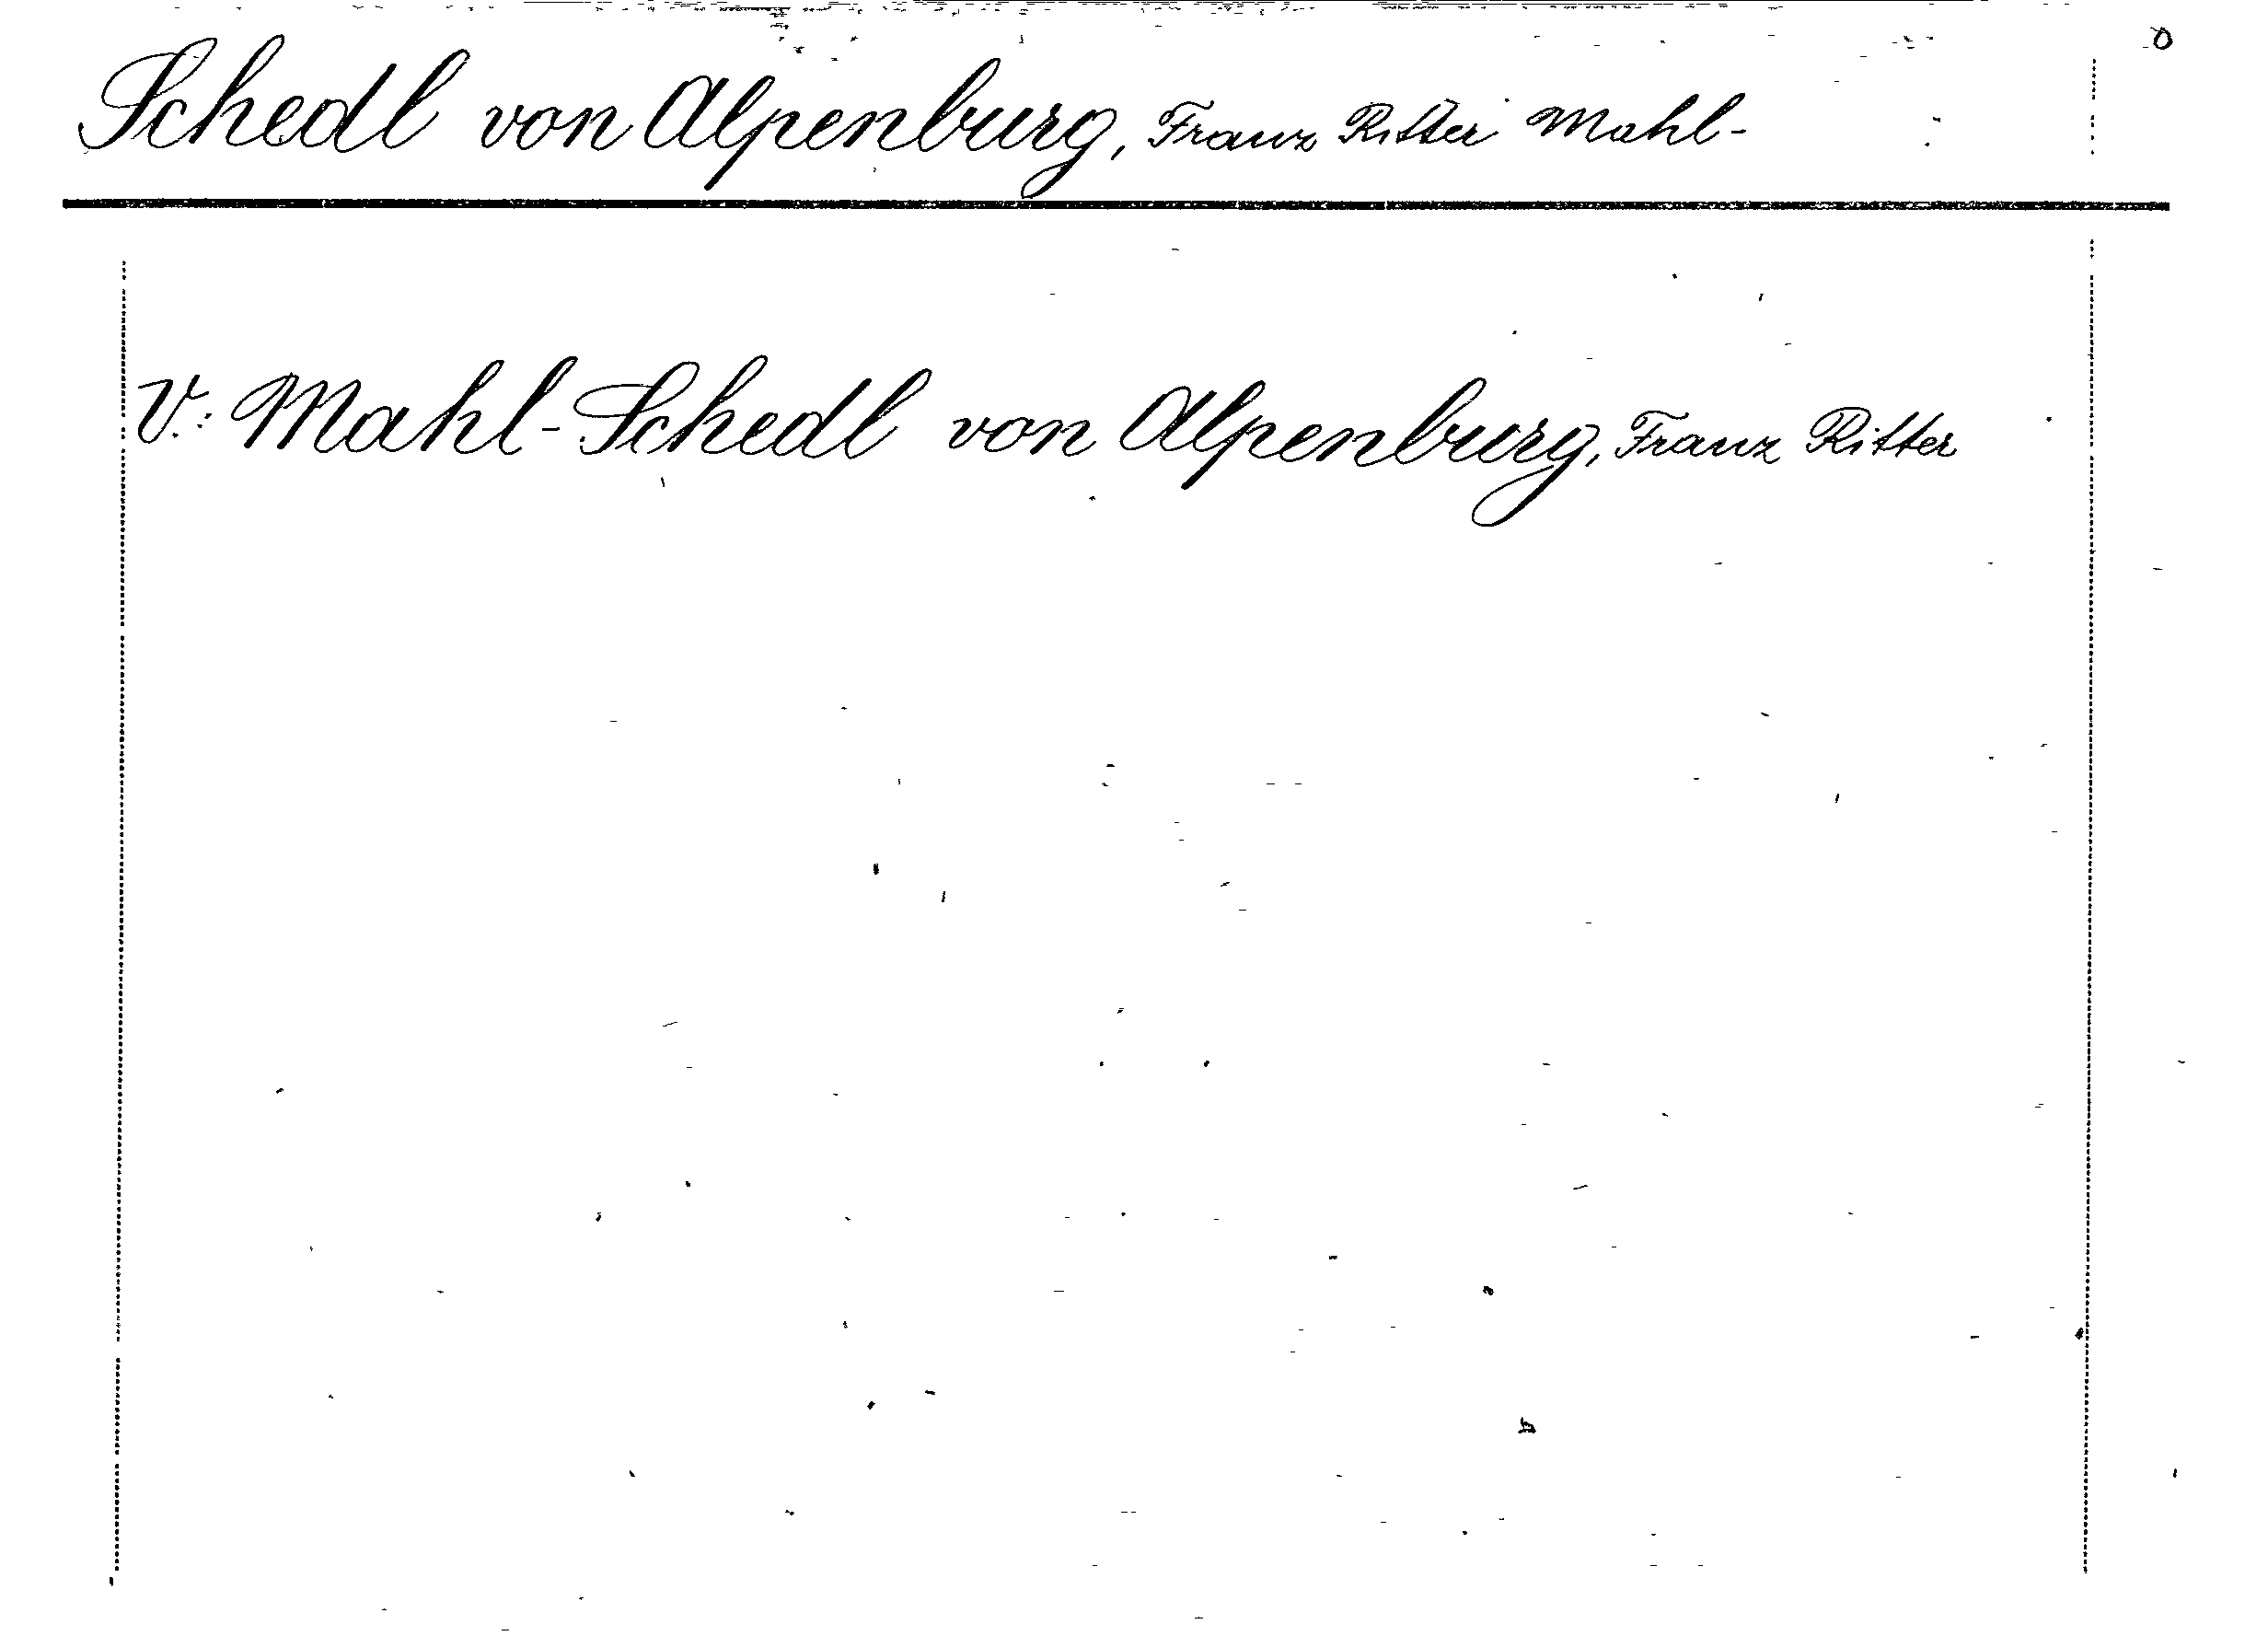 Schedl von Alpenburg, Franz Ritter Mahl-
V.: Mahl-Schedl von Alpenburg, Franz Ritter